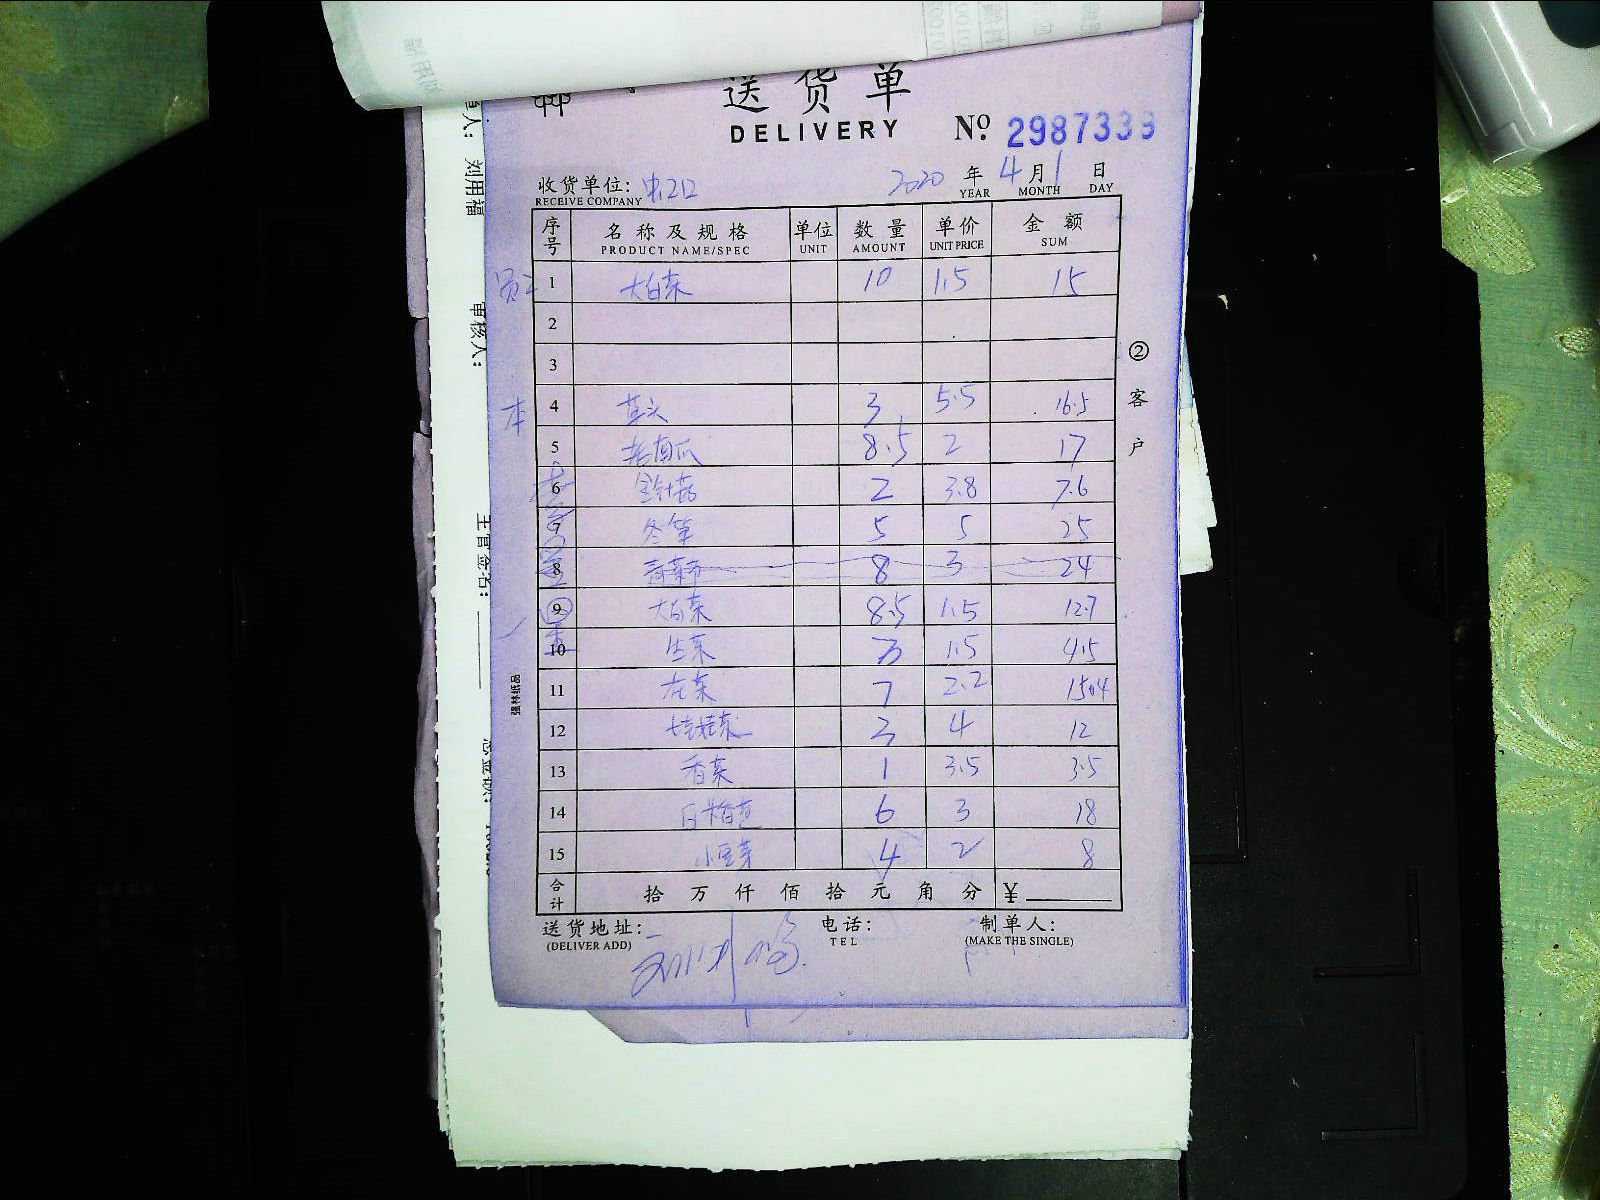 送货单
DELIVERY No. 2987339
收货单位: 2020 年 4 月 1 日
RECEIVE COMPANY YEAR MONTH DAY
序号 名称及规格 单位 数量 单价 金额
PRODUCT NAME/SPEC UNIT AMOUNT UNIT PRICE SUM
1 大白菜 10 1.5 15
2
3
本 4 草头 3 5.5 16.5
5 老南瓜 8.5 2 17
6 金针菇 2 3.8 7.6
7 冬笋 5 5 25
8 8 3 24
9 大白菜 8.5 1.5 12.7
10 生菜 3 1.5 4.5
11 7 2.2 15.4
12 娃娃菜 3 4 12
13 香菜 1 3.5 3.5
14 6 3 18
15 小豆芽 4 2 8
合计 拾 万 仟 佰 拾 元 角 分 ¥
送货地址: 电话: 制单人:
(DELIVER ADD) TEL (MAKE THE SINGLE)
②客户
强林纸品
刘用福
审核人: